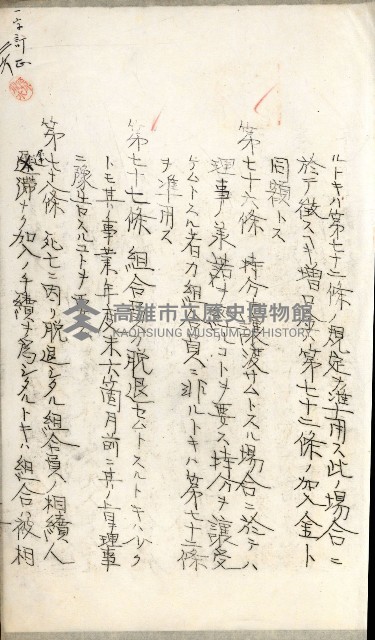 一字訂正
ルトキハ第七十二條ノ規定ヲ準用ス此ノ場合ニ
於テ徴スヘキ増口金ハ第七十二條ノ加入金ト
同額トス
第七十六條 持分ヲ譲渡サムトスル場合ニ於テハ
理事ノ承諾ヲ コトヲ要ス持分ヲ譲受
ケムトスル者カ組合員ニ非ルトキハ第七十二條
ヲ準用ス
第七十七條 組合員カ脱退セムトスルトキハ少ク
トモ其ノ事業年度末六箇月前ニ其ノ旨理事
ニ豫告スルコトヲ要ス
第七十八條 死亡ニ因リ脱退シタル組合員ノ相續人
遅滞ナク加入ノ手續ヲ為シタルトキハ組合ハ被相
高雄市立歷史博物館
KAOHSIUNG MUSEUM OF HISTORY